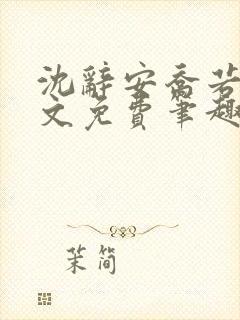 沈辞安乔若
文免费笔趣
茉简